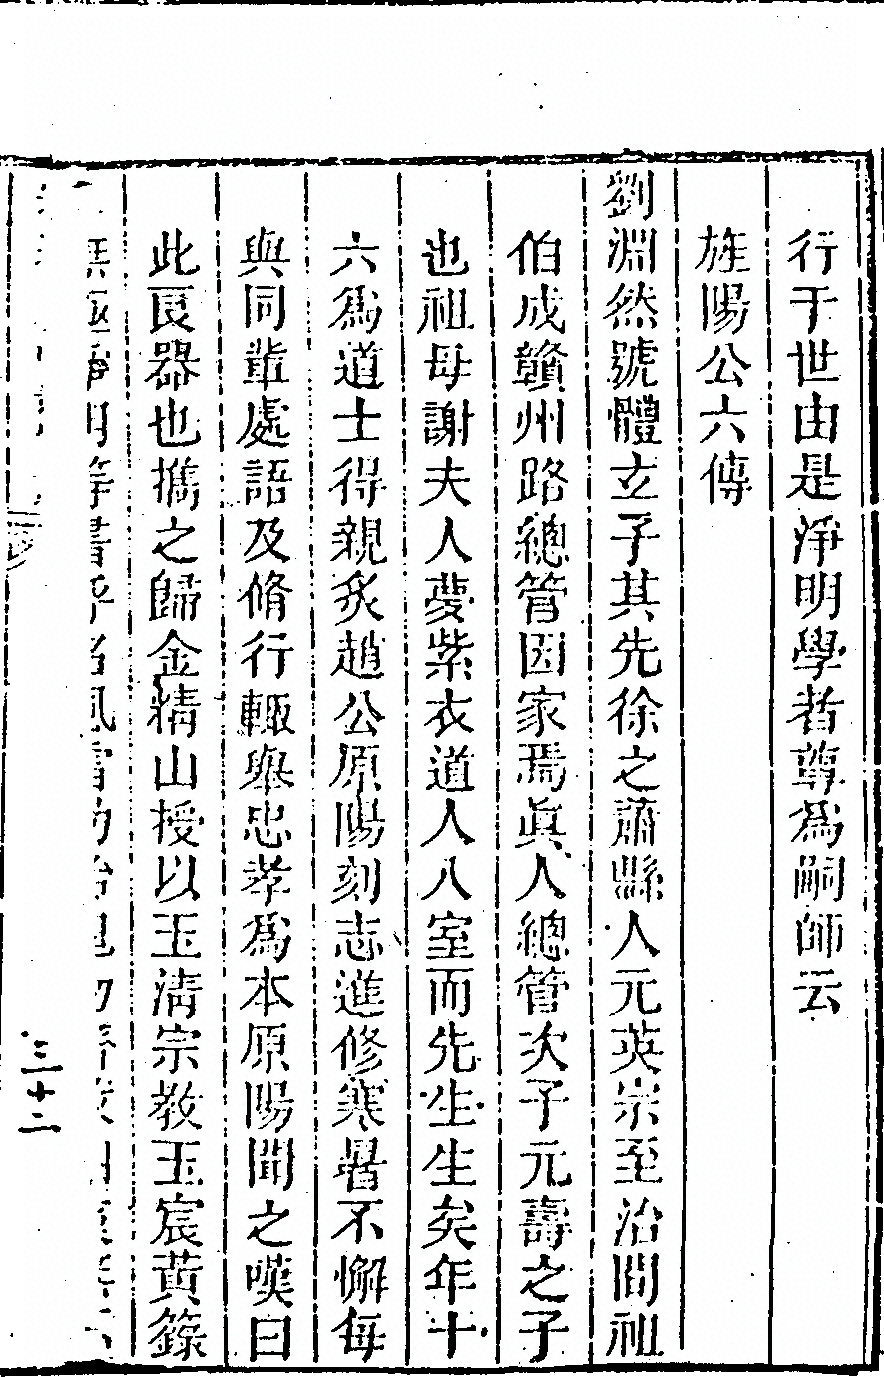 行于世由是淨明學者尊爲嗣師云
旌陽公六傳
劉淵然號體玄子其先徐之蕭縣人元英宗至治間祖
伯成贛州路總管因家焉眞人總管次子元壽之子
也祖母謝夫人夢紫衣道人入室而先生生矣年十
六爲道士得親炙趙公原陽刻志進修寒暑不懈每
與同輩處語及脩行輒舉忠孝爲本原陽聞之嘆曰
此良器也携之歸金精山授以玉清宗教玉宸黃籙
等書呼召風雷
三十二